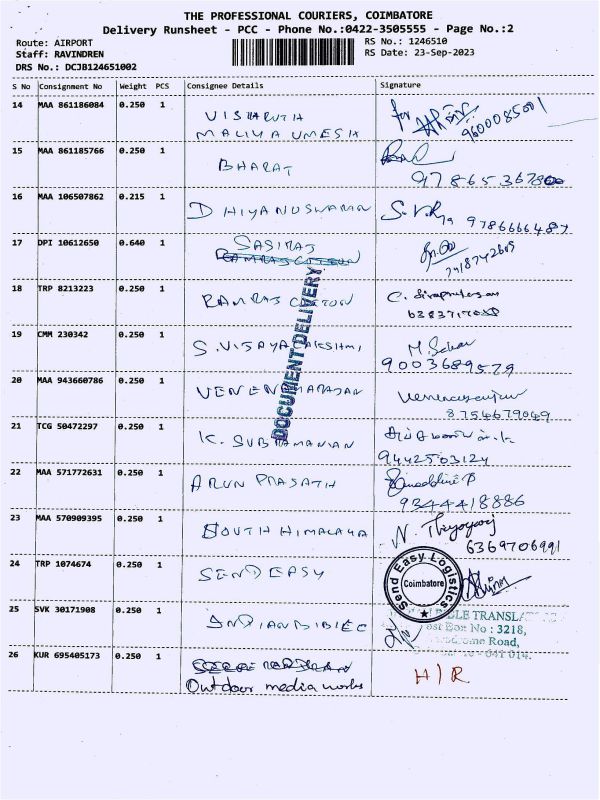 THE PROFESSIONAL COURIERS, COIMBATORE
Delivery Runsheet - PCC - Phone No.:0422-3505555 - Page No.:2
Route: AIRPORT
Staff: RAVINDREN
DRS No.: DCJB124651002
RS No.: 1246510
RS Date: 23-Sep-2023
S No Consignment No Weight PCS Consignee Details Signature
14 MAA 861186084 0.250 1 VISHRUTH for
MALIYA UMESH 9600085001
15 MAA 861185766 0.250 1 BHARAT
9786536780
16 MAA 106507862 0.215 1 DHIYANUSWARAN
9786666487
17 DPI 10612650 0.640 1 SASIRAJ
7418742605
18 TRP 8213223 0.250 1 RAMRAJ COTTON
19 CMM 230342 0.250 1 S. VIJAYALAKSHMI M.
9003689579
20 MAA 943660786 0.250 1
8754679049
21 TCG 50472297 0.250 1 K. SUBRAMANIAN
9442503124
22 MAA 571772631 0.250 1 ARUN PRASATH
9344418886
23 MAA 570909395 0.250 1 SOUTH HIMALAYA N.
6369706991
24 TRP 1074674 0.250 1
Send Easy Logistics
Coimbatore
25 SVK 30171908 0.250 1
BIBLE
Box No : 3218,
Road,
641 014.
26 KUR 695405173 0.250 1
Outdoor media works H/R
DOCUMENT DELIVERY